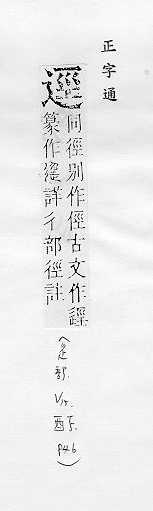 正字通
同徑別作俓古文作
篆作詳彳部徑註
(辵部. 酉下. P46)